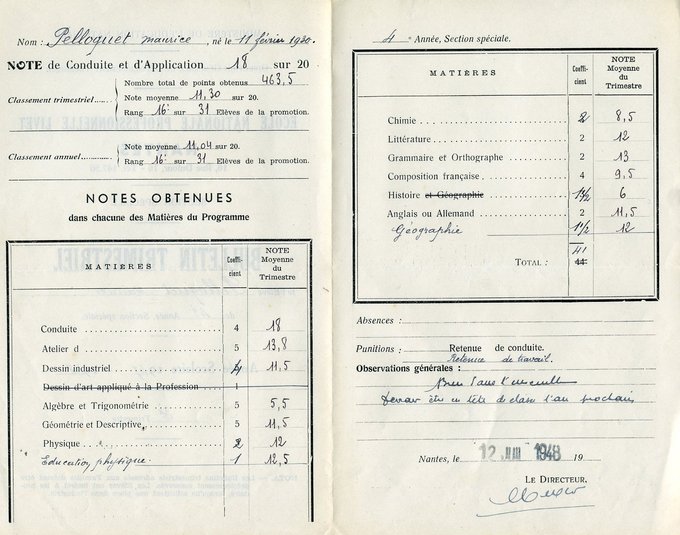 Nom : Pelloquet maurice, né le 11 février 1930.
NOTE de Conduite et d'Application 18 sur 20
Classement trimestriel
Nombre total de points obtenus 463,5
Note moyenne 11,30 sur 20.
Rang 16e sur 31 Elèves de la promotion.
Classement annuel
Note moyenne 11,04 sur 20.
Rang 16e sur 31 Elèves de la promotion.
NOTES OBTENUES
dans chacune des Matières du Programme
MATIÈRES Coefficient NOTE Moyenne du Trimestre
Conduite 4 18
Atelier d 5 13,8
Dessin industriel 4 11,5
Dessin d'art appliqué à la Profession 1
Algèbre et Trigonométrie 5 5,5
Géométrie et Descriptive 5 11,5
Physique 2 12
Education physique 1 12,5
4e Année, Section spéciale.
MATIÈRES Coefficient NOTE Moyenne du Trimestre
Chimie 2 8,5
Littérature 2 12
Grammaire et Orthographe 2 13
Composition française 4 9,5
Histoire et Géographie 1 1/2 6
Anglais ou Allemand 2 11,5
Géographie 1 1/2 12
41
TOTAL : 44
Absences :
Punitions : Retenue de conduite.
Retenue de travail.
Observations générales :
Devrait être en tête de classe l'an prochain
Nantes, le 12 1948 19
LE DIRECTEUR,